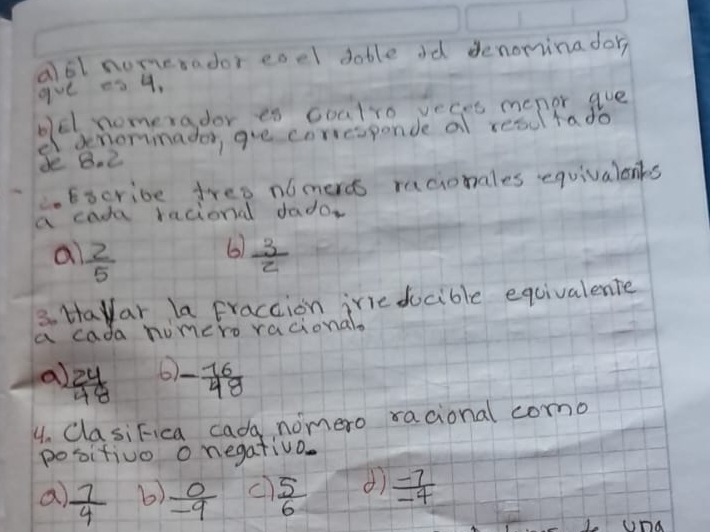 a) El numerador es el doble del denominador,
que es 4.
b) El numerador es cuatro veces menor que
el denominador, que corresponde al resultado
de 8.2
2. Escribe tres números racionales equivalentes
a cada racional dado.
a) 2/5 b) 3/2
3. Hallar la fracción irreducible equivalente
a cada número racional.
a) 24/48 b) -16/48
4. Clasifica cada número racional como
positivo o negativo.
a) 7/4 b) 0/-9 c) 5/6 d) -7/-4
una